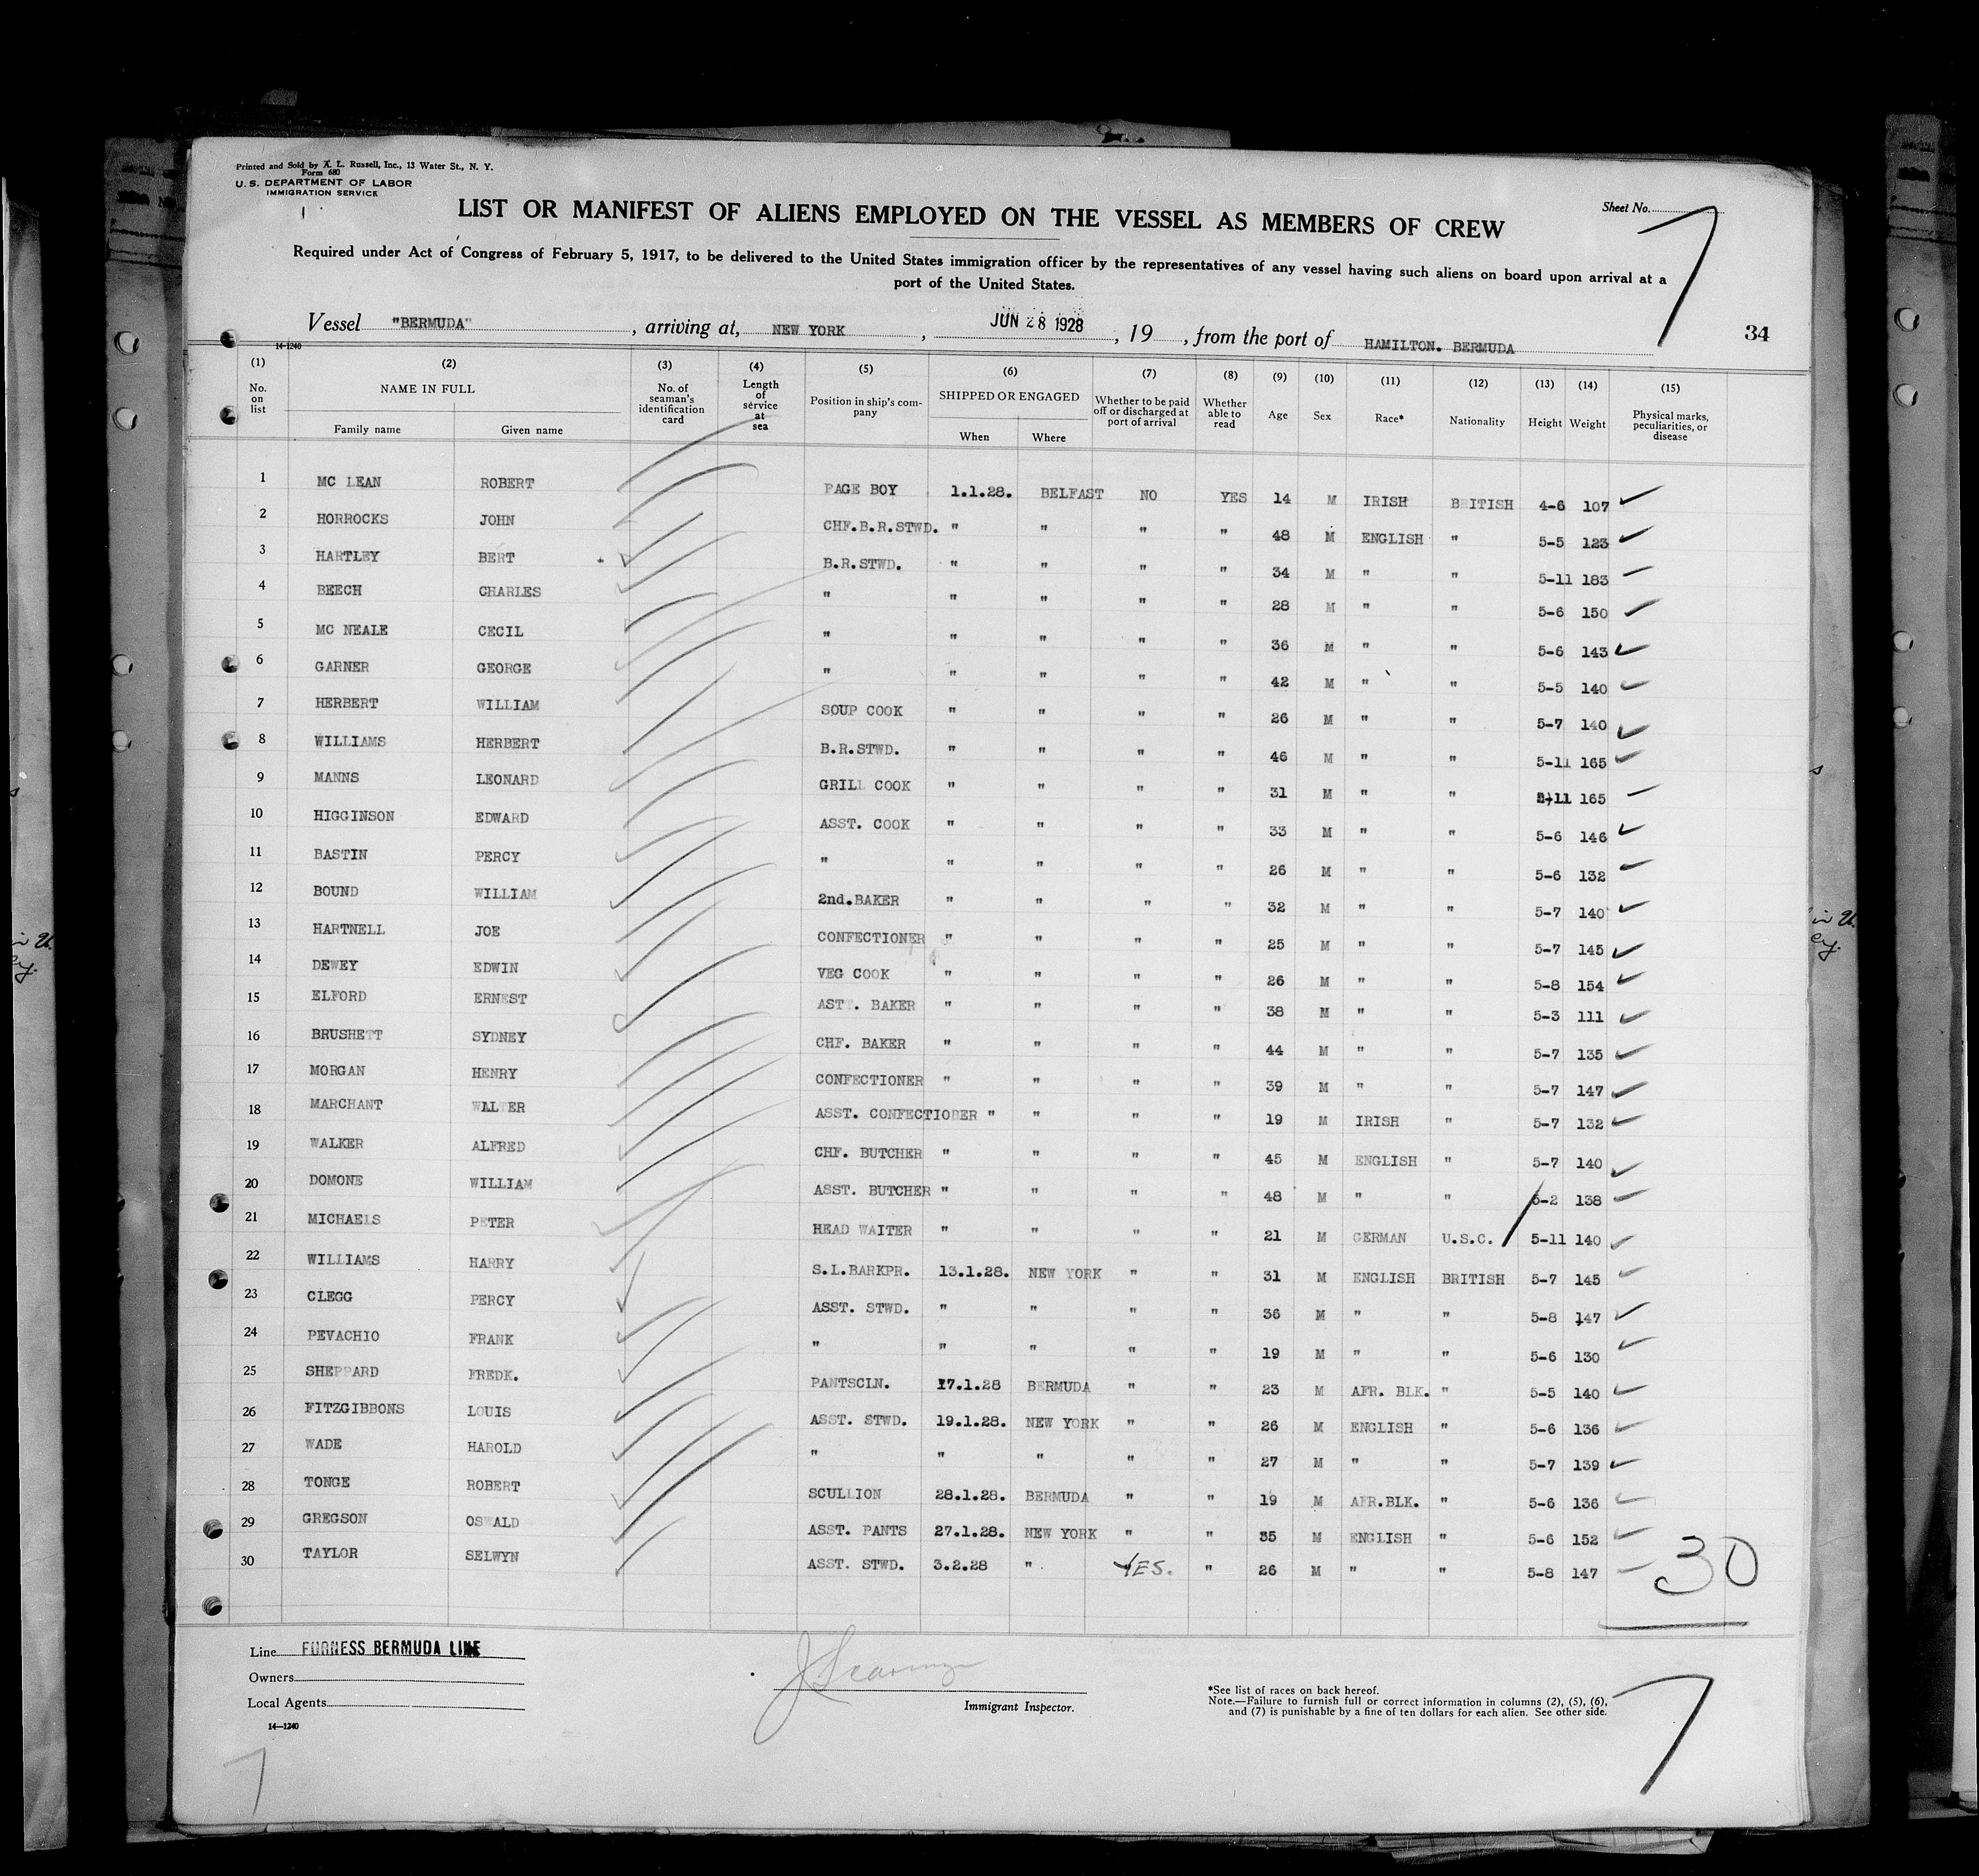 Printed and Sold by A. L. Russell, Inc., 13 Water St., N. Y.
Form 680
U. S. DEPARTMENT OF LABOR
IMMIGRATION SERVICE
Sheet No. 7
LIST OR MANIFEST OF ALIENS EMPLOYED ON THE VESSEL AS MEMBERS OF CREW
Required under Act of Congress of February 5, 1917, to be delivered to the United States immigration officer by the representatives of any vessel having such aliens on board upon arrival at a
port of the United States.
Vessel "BERMUDA", arriving at, NEW YORK, JUN 28 1928, 19, from the port of HAMILTON. BERMUDA
34
14-1240
(1) (2) (3) (4) (5) (6) (7) (8) (9) (10) (11) (12) (13) (14) (15)
No. on list NAME IN FULL Family name Given name No. of seaman's identification card Length of service at sea Position in ship's company SHIPPED OR ENGAGED When Where Whether to be paid off or discharged at port of arrival Whether able to read Age Sex Race* Nationality Height Weight Physical marks, peculiarities, or disease
1 MC LEAN ROBERT PAGE BOY 1.1.28. BELFAST NO YES 14 M IRISH BRITISH 4-6 107
2 HORROCKS JOHN CHF.B.R.STWD. " " " " 48 M ENGLISH " 5-5 123
3 HARTLEY BERT B.R.STWD. " " " " 34 M " " 5-11 183
4 BEECH CHARLES " " " " " 28 M " " 5-6 150
5 MC NEALE CECIL " " " " " 36 M " " 5-6 143
6 GARNER GEORGE " " " " " 42 M " " 5-5 140
7 HERBERT WILLIAM SOUP COOK " " " " 26 M " " 5-7 140
8 WILLIAMS HERBERT B.R.STWD. " " " " 46 M " " 5-11 165
9 MANNS LEONARD GRILL COOK " " " " 31 M " " 11 165
10 HIGGINSON EDWARD ASST. COOK " " " " 33 M " " 5-6 146
11 BASTIN PERCY " " " " " 26 M " " 5-6 132
12 BOUND WILLIAM 2nd.BAKER " " " " 32 M " " 5-7 140
13 HARTNELL JOE CONFECTIONER " " " " 25 M " " 5-7 145
14 DEWEY EDWIN VEG COOK " " " " 26 M " " 5-8 154
15 ELFORD ERNEST AST . BAKER " " " " 38 M " " 5-3 111
16 BRUSHETT SYDNEY CHF. BAKER " " " " 44 M " " 5-7 135
17 MORGAN HENRY CONFECTIONER " " " " 39 M " " 5-7 147
18 MARCHANT WALTER ASST. CONFECTIOBER " " " " 19 M IRISH " 5-7 132
19 WALKER ALFRED CHF. BUTCHER " " " " 45 M ENGLISH " 5-7 140
20 DOMONE WILLIAM ASST. BUTCHER " " " " 48 M " " 5-2 138
21 MICHAELS PETER HEAD WAITER " " " " 21 M GERMAN U.S.C. 5-11 140
22 WILLIAMS HARRY S.L.BARKPR. 13.1.28. NEW YORK " " 31 M ENGLISH BRITISH 5-7 145
23 CLEGG PERCY ASST. STWD. " " " " 36 M " " 5-8 147
24 PEVACHIO FRANK " " " " " 19 M " " 5-6 130
25 SHEPPARD FREDK. PANTSCLN. 17.1.28 BERMUDA " " 23 M AFR. BLK. " 5-5 140
26 FITZGIBBONS LOUIS ASST. STWD. 19.1.28. NEW YORK " " 26 M ENGLISH " 5-6 136
27 WADE HAROLD " " " " " 27 M " " 5-7 139
28 TONGE ROBERT SCULLION 28.1.28. BERMUDA " " 19 M AFR.BLK. " 5-6 136
29 GREGSON OSWALD ASST. PANTS 27.1.28. NEW YORK " " 35 M ENGLISH " 5-6 152
30 TAYLOR SELWYN ASST. STWD. 3.2.28 " YES. " 26 M " " 5-8 147
30
Line FURNESS BERMUDA LINE
Owners
Local Agents
14—1240
Immigrant Inspector.
*See list of races on back hereof.
Note.—Failure to furnish full or correct information in columns (2), (5), (6),
and (7) is punishable by a fine of ten dollars for each alien. See other side.
7
7